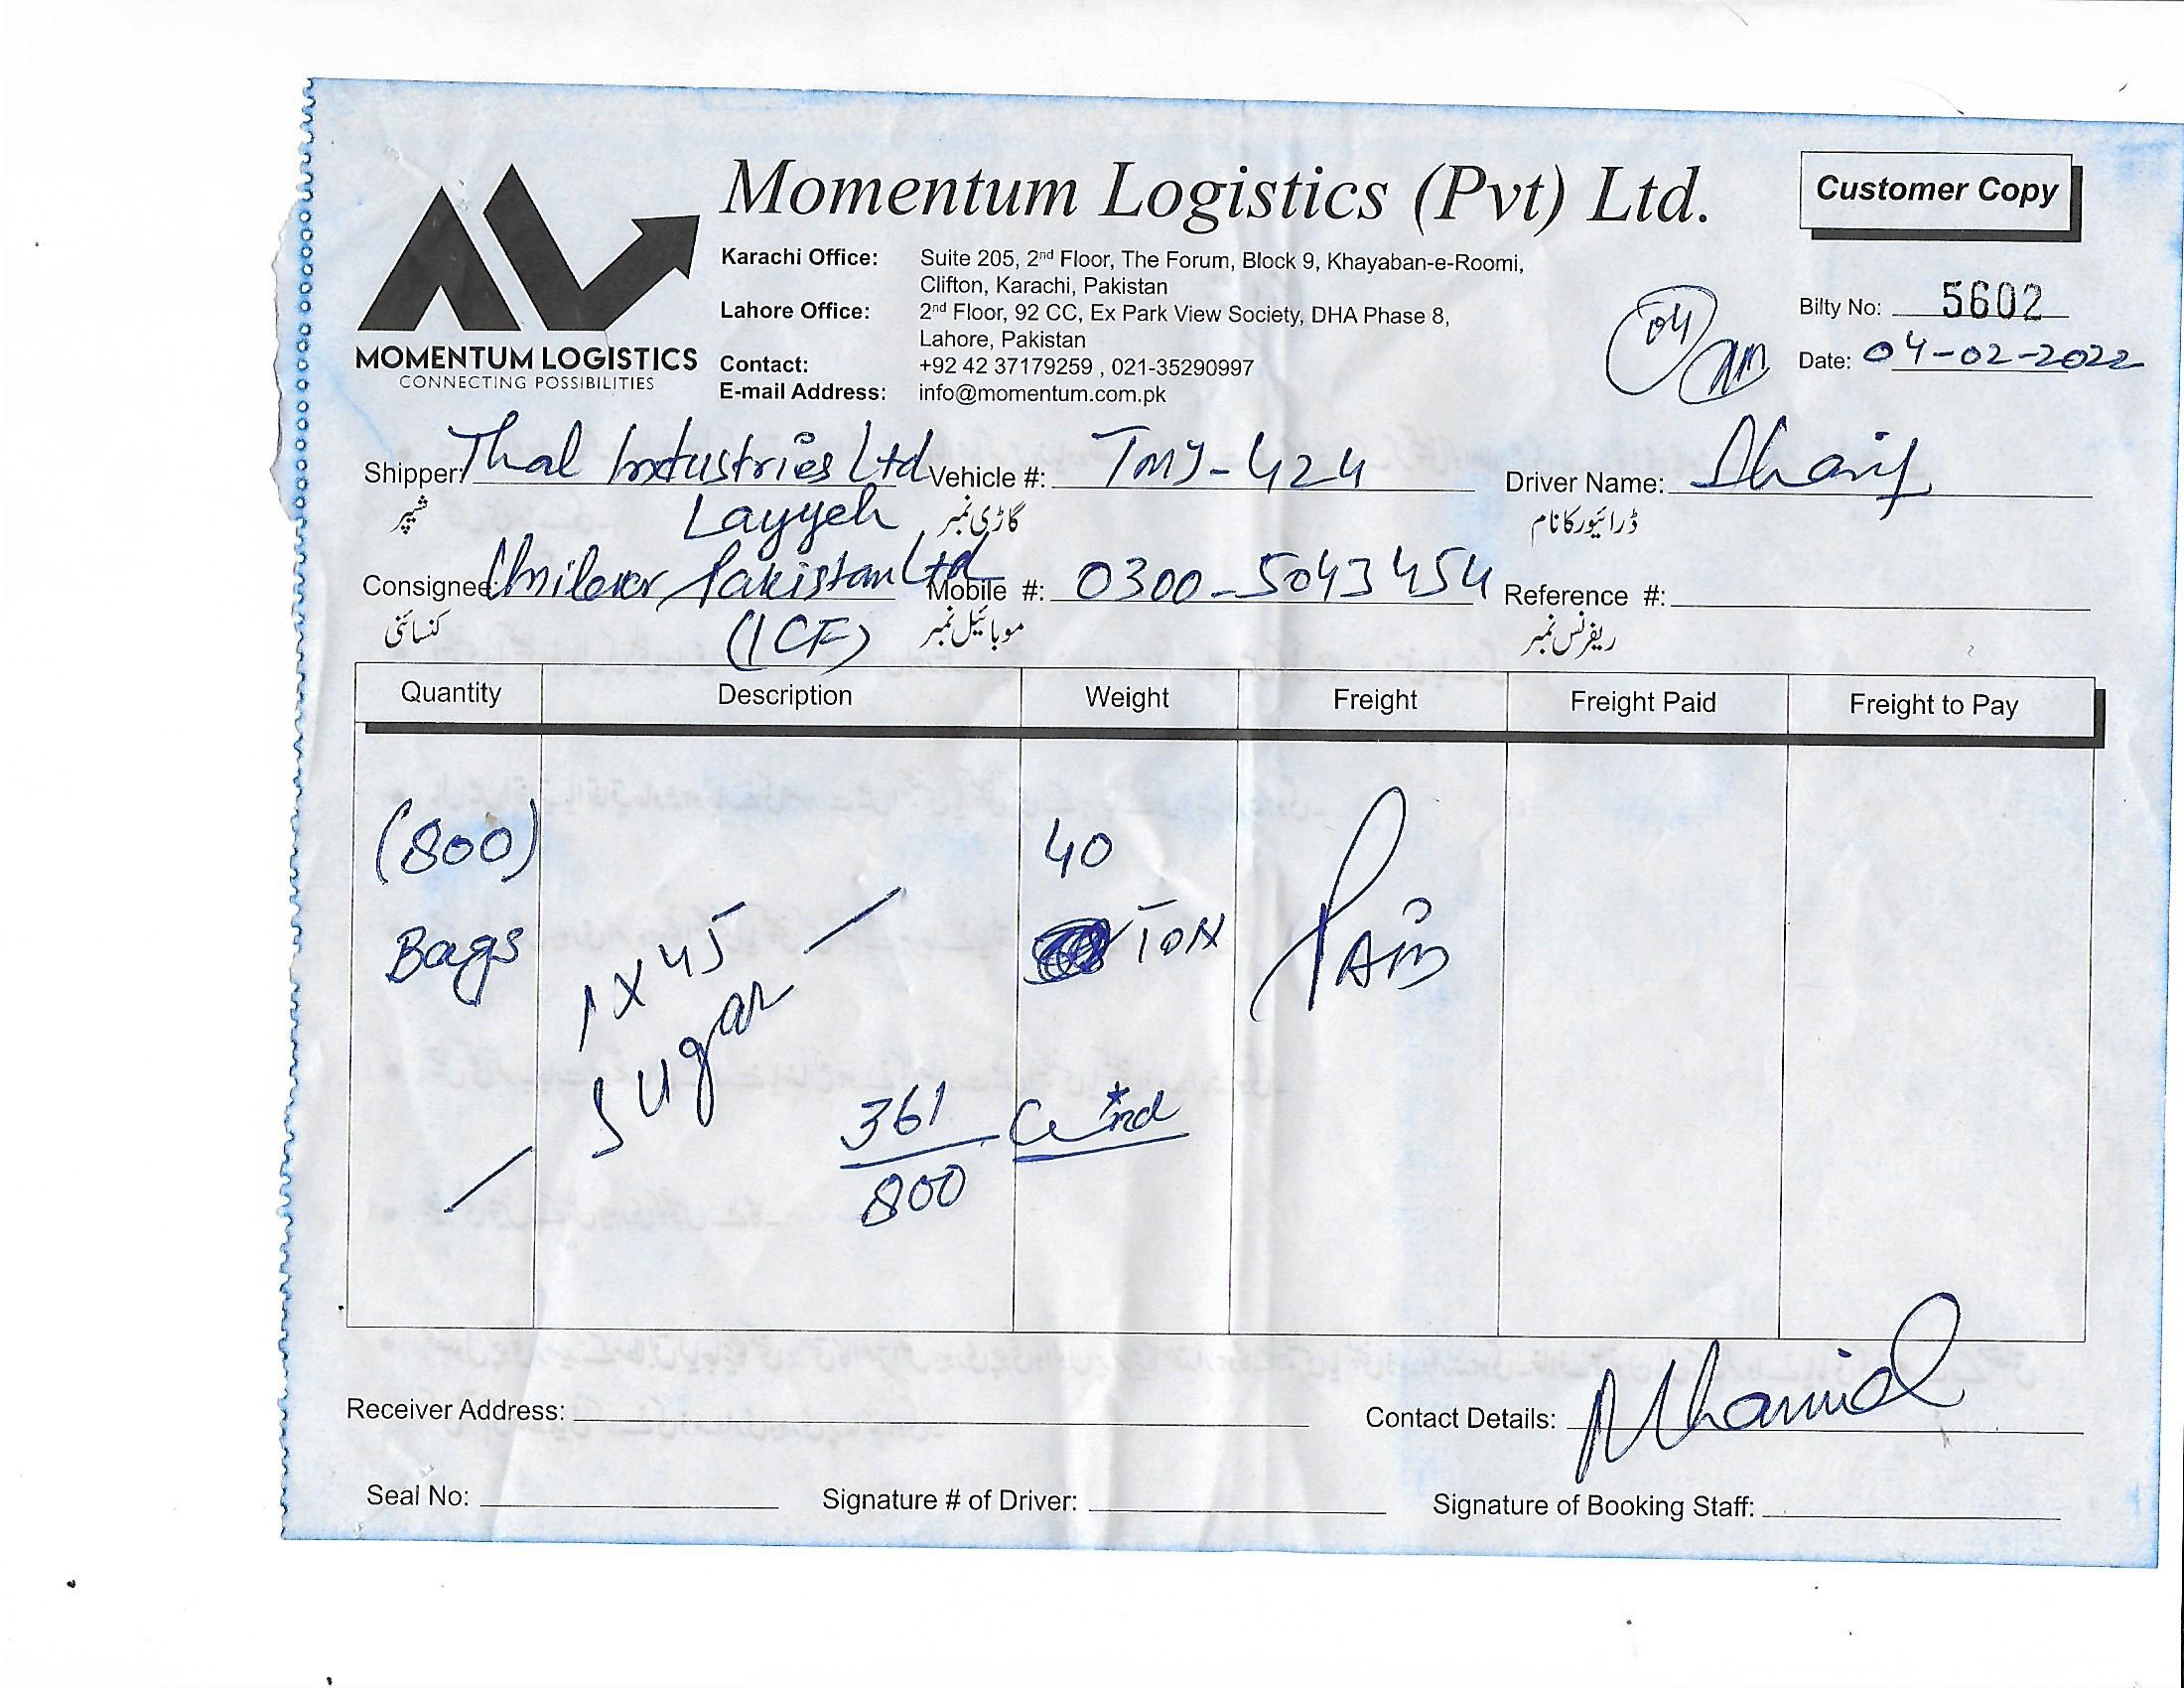 Momentum Logistics (Pvt) Ltd.
Customer Copy
MOMENTUM LOGISTICS
CONNECTING POSSIBILITIES
Karachi Office: Suite 205, 2nd Floor, The Forum, Block 9, Khayaban-e-Roomi,
Clifton, Karachi, Pakistan
Lahore Office: 2nd Floor, 92 CC, Ex Park View Society, DHA Phase 8,
Lahore, Pakistan
Contact: +92 42 37179259 , 021-35290997
E-mail Address: info@momentum.com.pk
04
Bilty No: 5602
Date: 04-02-2022
Shipper: Thal Industries Ltd Vehicle #: TMJ-424 Driver Name: Sharif
شیپر Layyeh گاڑی نمبر ڈرائیور کا نام
Consignee: Unilever Pakistan Ltd Mobile #: 0300-5043454 Reference #:
کنسائنی (ICF) موبائیل نمبر ریفرنس نمبر
Quantity Description Weight Freight Freight Paid Freight to Pay
(800) 40
Bags TON PAID
1x45
Sugar
361
800
Receiver Address: Contact Details:
Seal No: Signature # of Driver: Signature of Booking Staff: